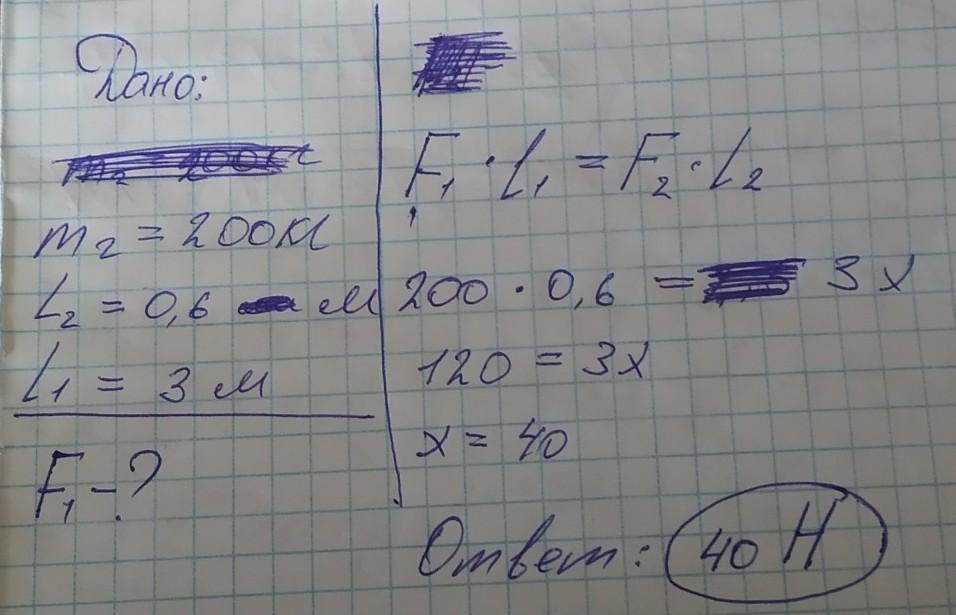 Дано:
m₂ = 200кг
L₂ = 0,6 м
L₁ = 3 м
F₁ - ?
F₁ · L₁ = F₂ · L₂
200 · 0,6 = 3х
120 = 3х
х = 40
Ответ: 40 Н